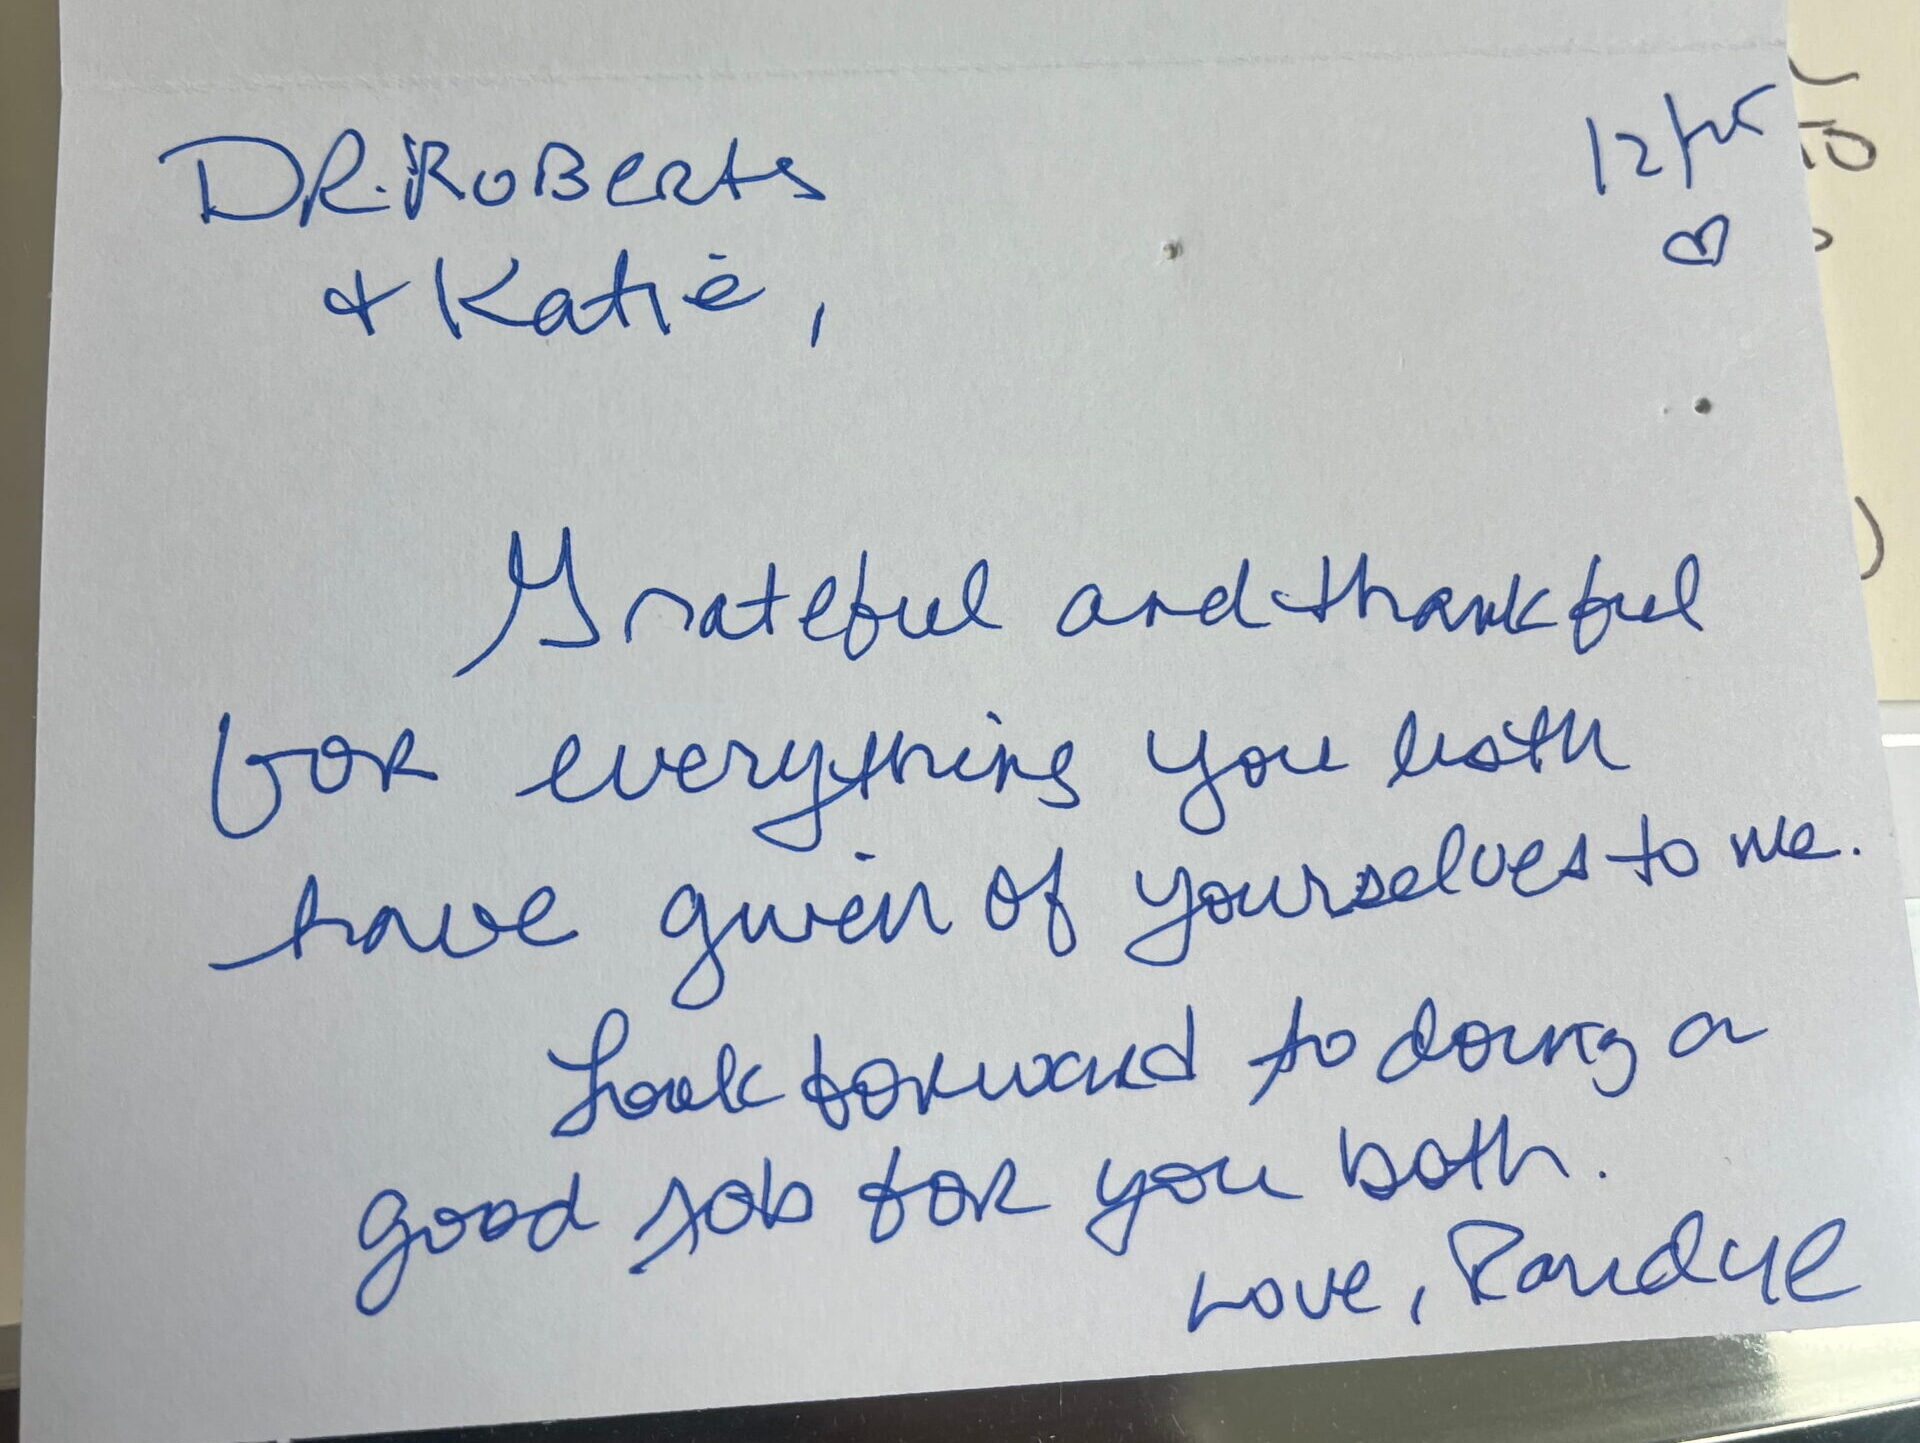 DR. ROBERTS
12/
+ Katie,
Grateful and thankful
for everything you both
have given of yourselves to me.
Look forward to doing a
good job for you both.
Love, Randye